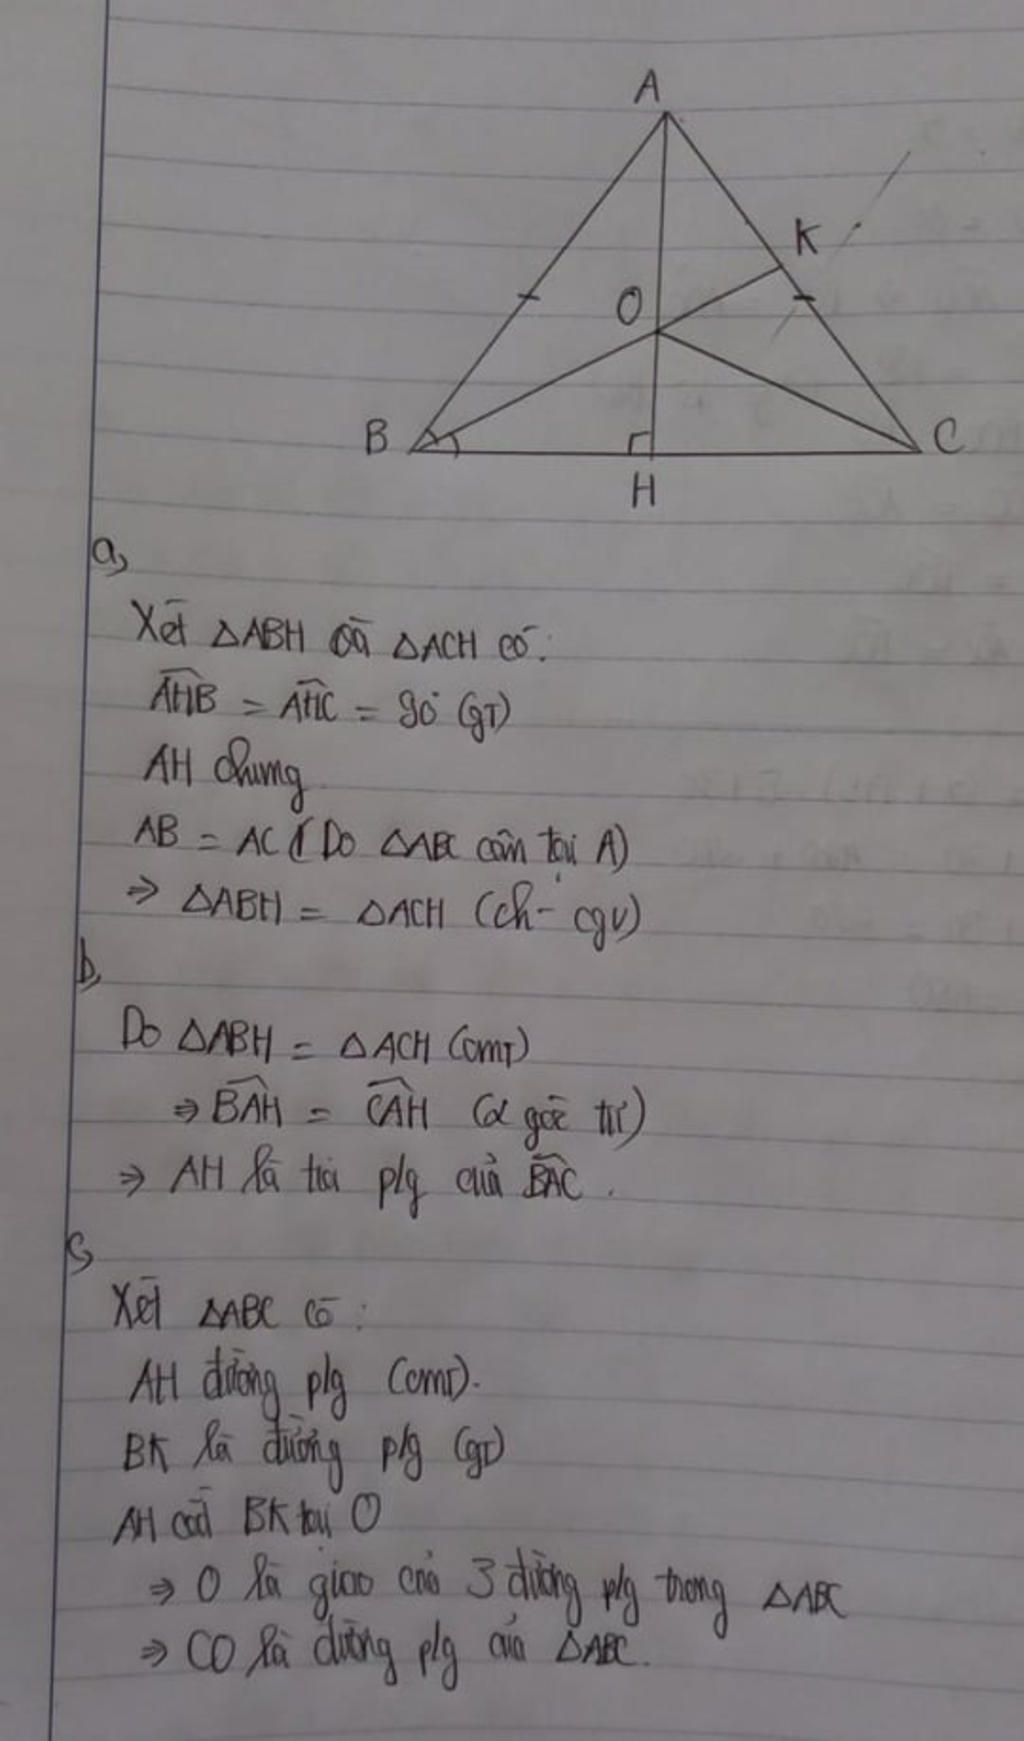 A
K
O
B
C
H
a,
Xét △ABH và △ACH có:
AHB = AHC = 90° (gT)
AH chung
AB = AC (Do △ABC cân tại A)
⇒ △ABH = △ACH (ch - cgv)
b,
Do △ABH = △ACH (cmT)
⇒ BAH = CAH (2 góc tứ)
⇒ AH là tia p/g của BAC.
c,
Xét △ABC có:
AH đường p/g (cmT).
BK là đường p/g (gT)
AH cắt BK tại O
⇒ O là giao của 3 đường p/g trong △ABC
⇒ CO là đường p/g của △ABC.